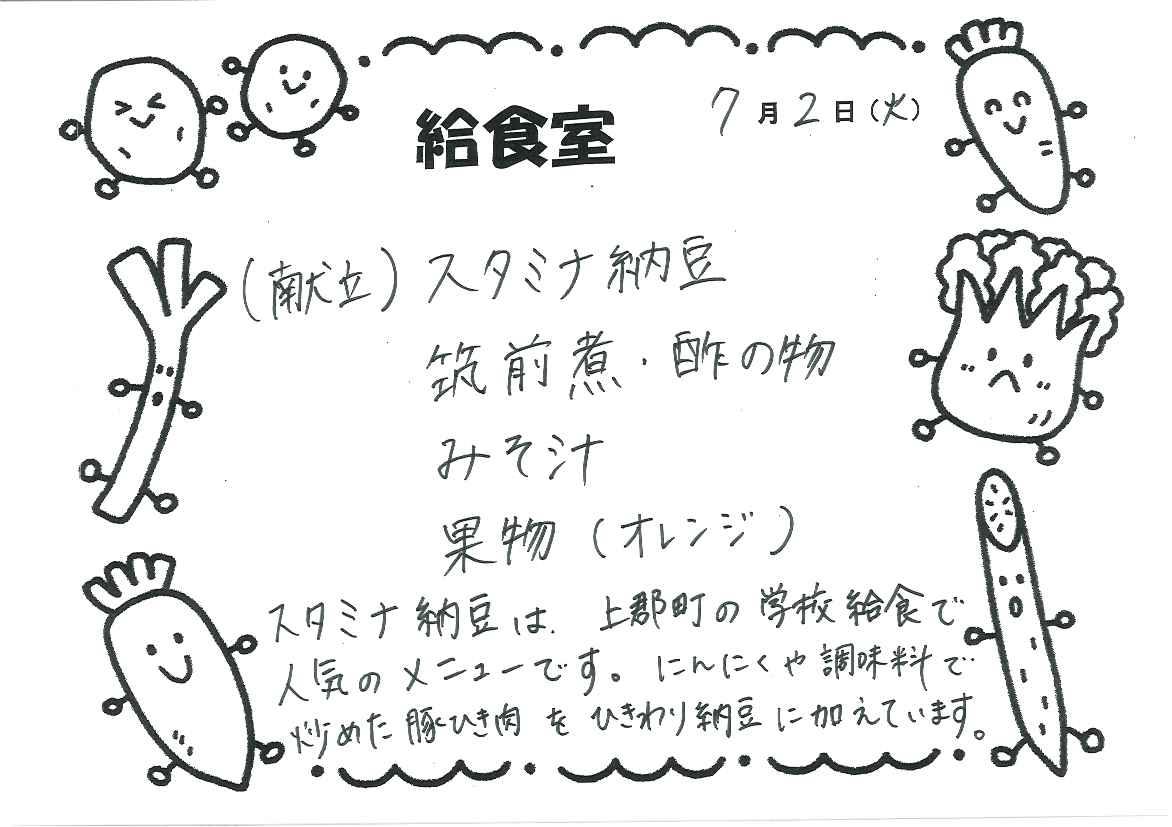 給食室
7月2日(火)
(献立)スタミナ納豆
筑前煮・酢の物
みそ汁
果物(オレンジ)
スタミナ納豆は、上郡町の学校給食で
人気のメニューです。にんにくや調味料で
炒めた豚ひき肉をひきわり納豆に加えています。